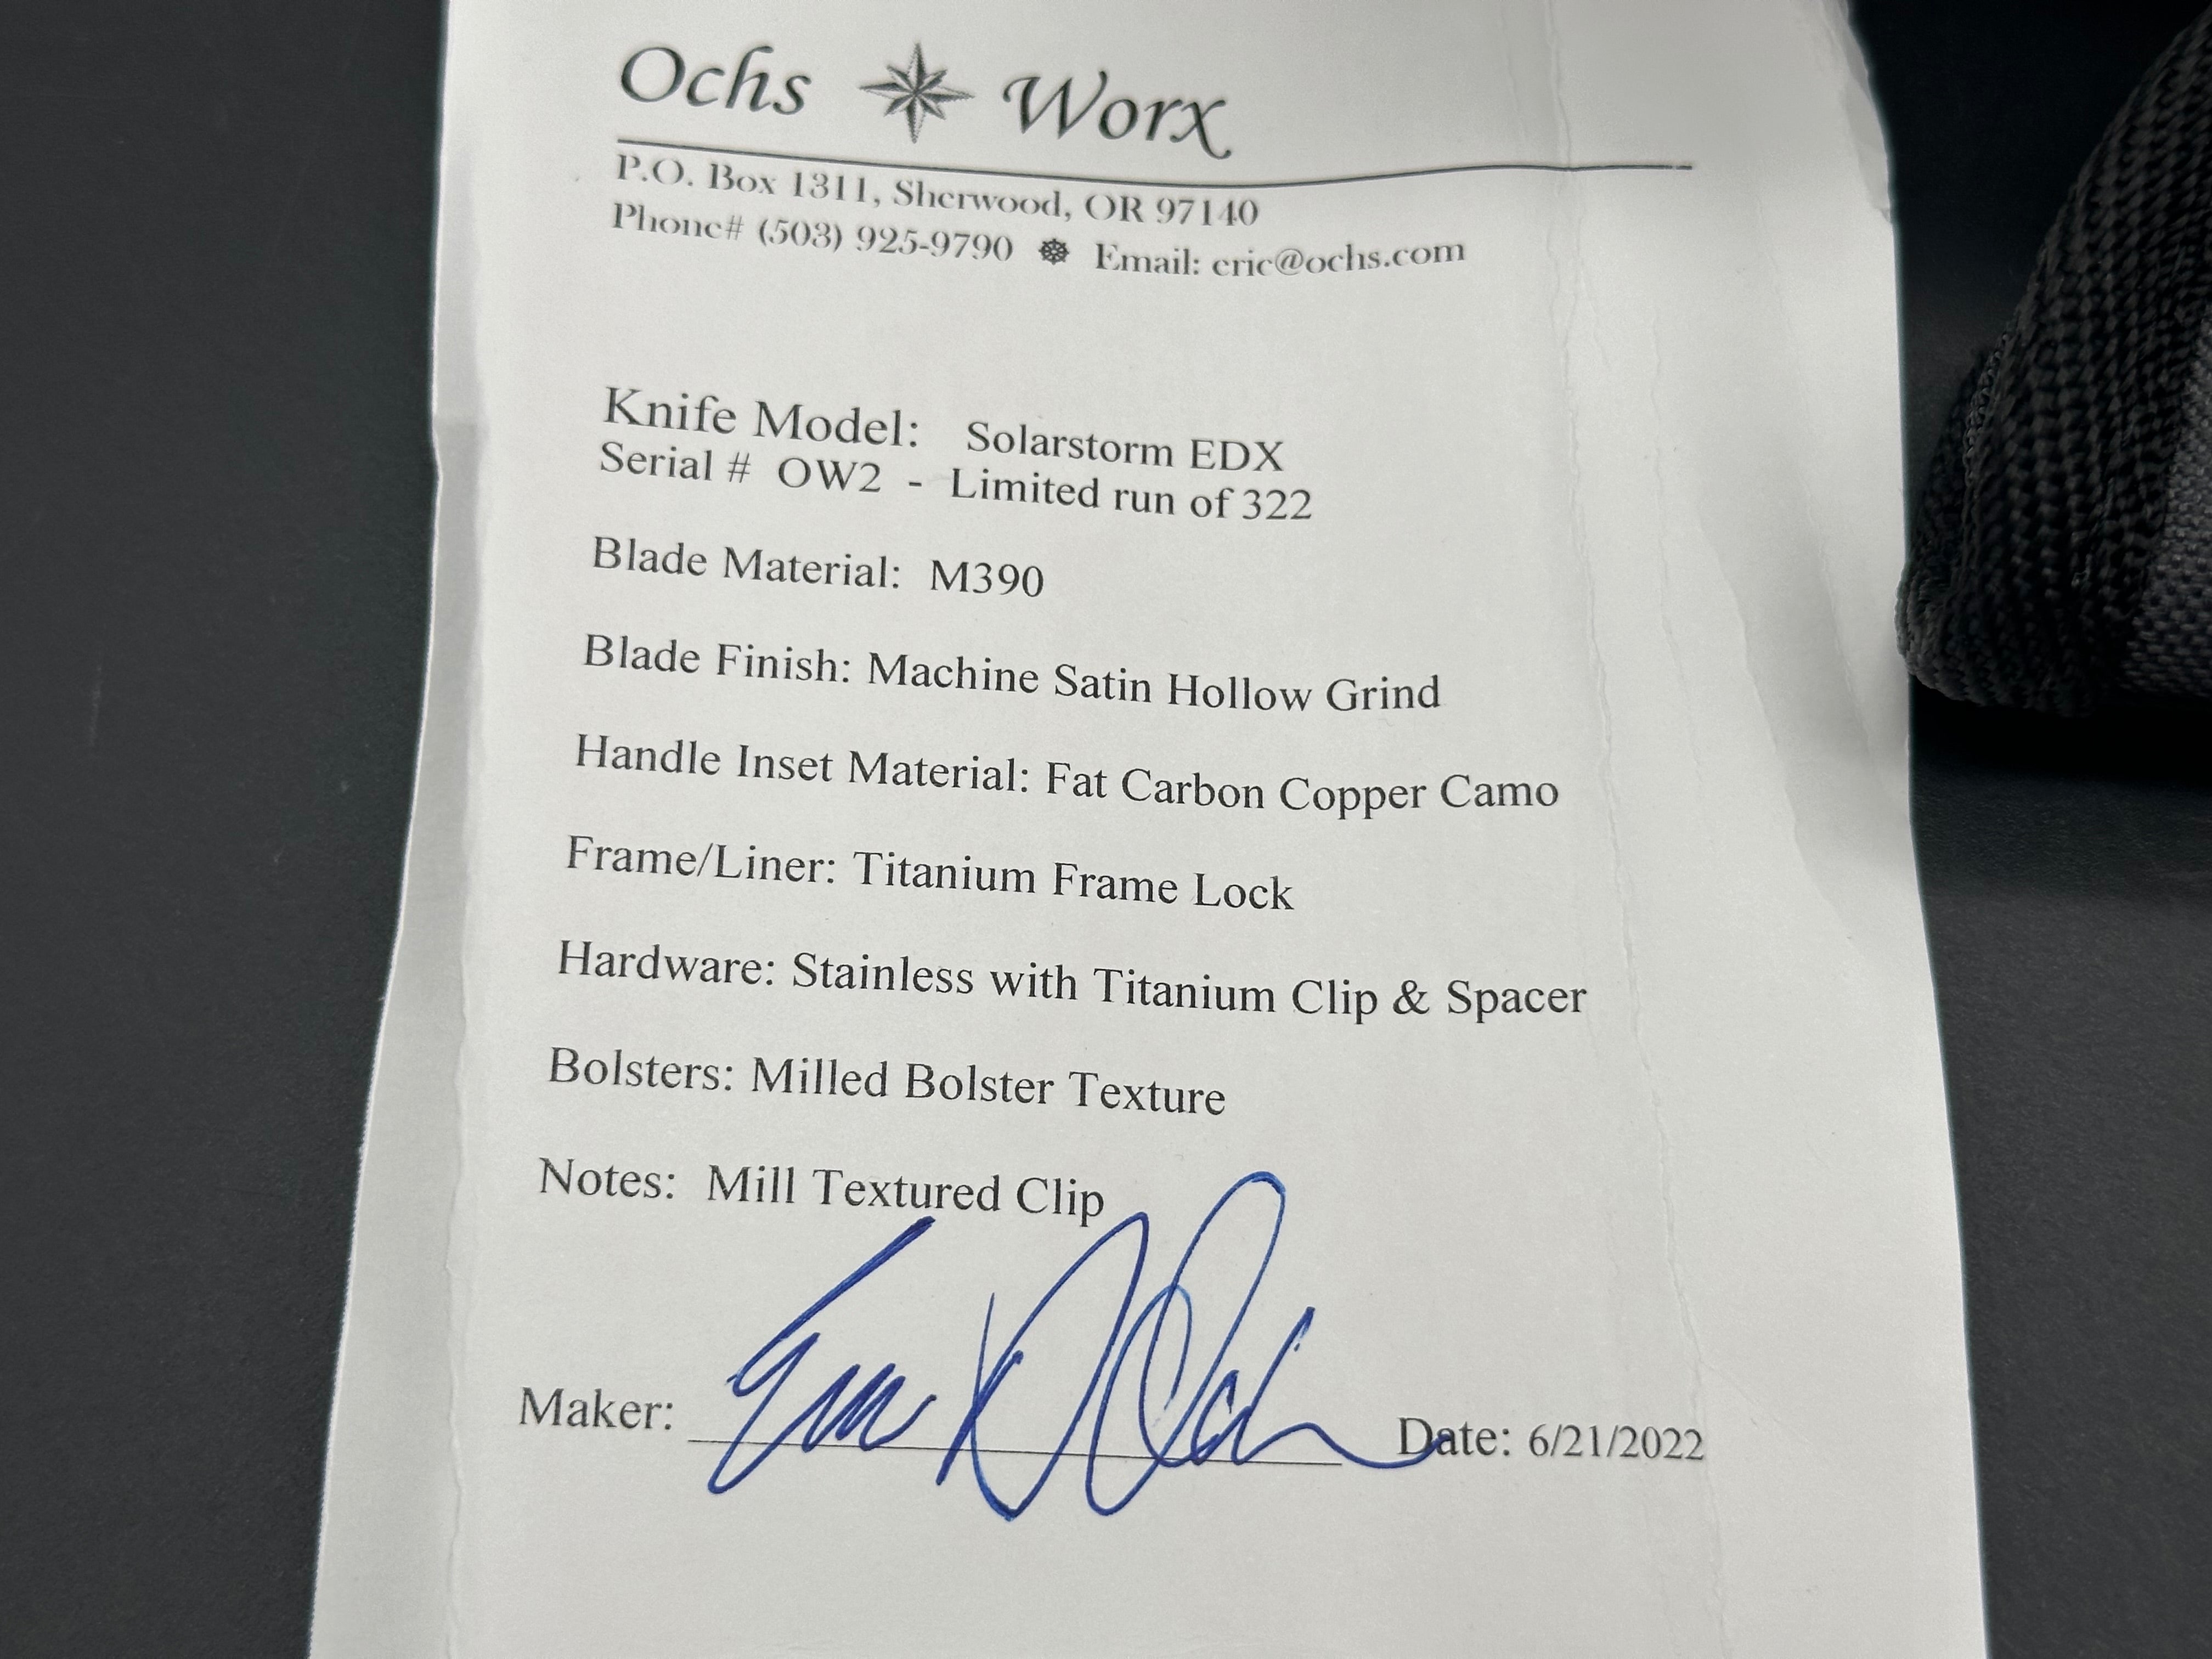 Ochs Worx
P.O. Box 1311, Sherwood, OR 97140
Phone# (503) 925-9790 Email: eric@ochs.com
Knife Model: Solarstorm EDX
Serial # OW2 - Limited run of 322
Blade Material: M390
Blade Finish: Machine Satin Hollow Grind
Handle Inset Material: Fat Carbon Copper Camo
Frame/Liner: Titanium Frame Lock
Hardware: Stainless with Titanium Clip & Spacer
Bolsters: Milled Bolster Texture
Notes: Mill Textured Clip
Maker: Date: 6/21/2022